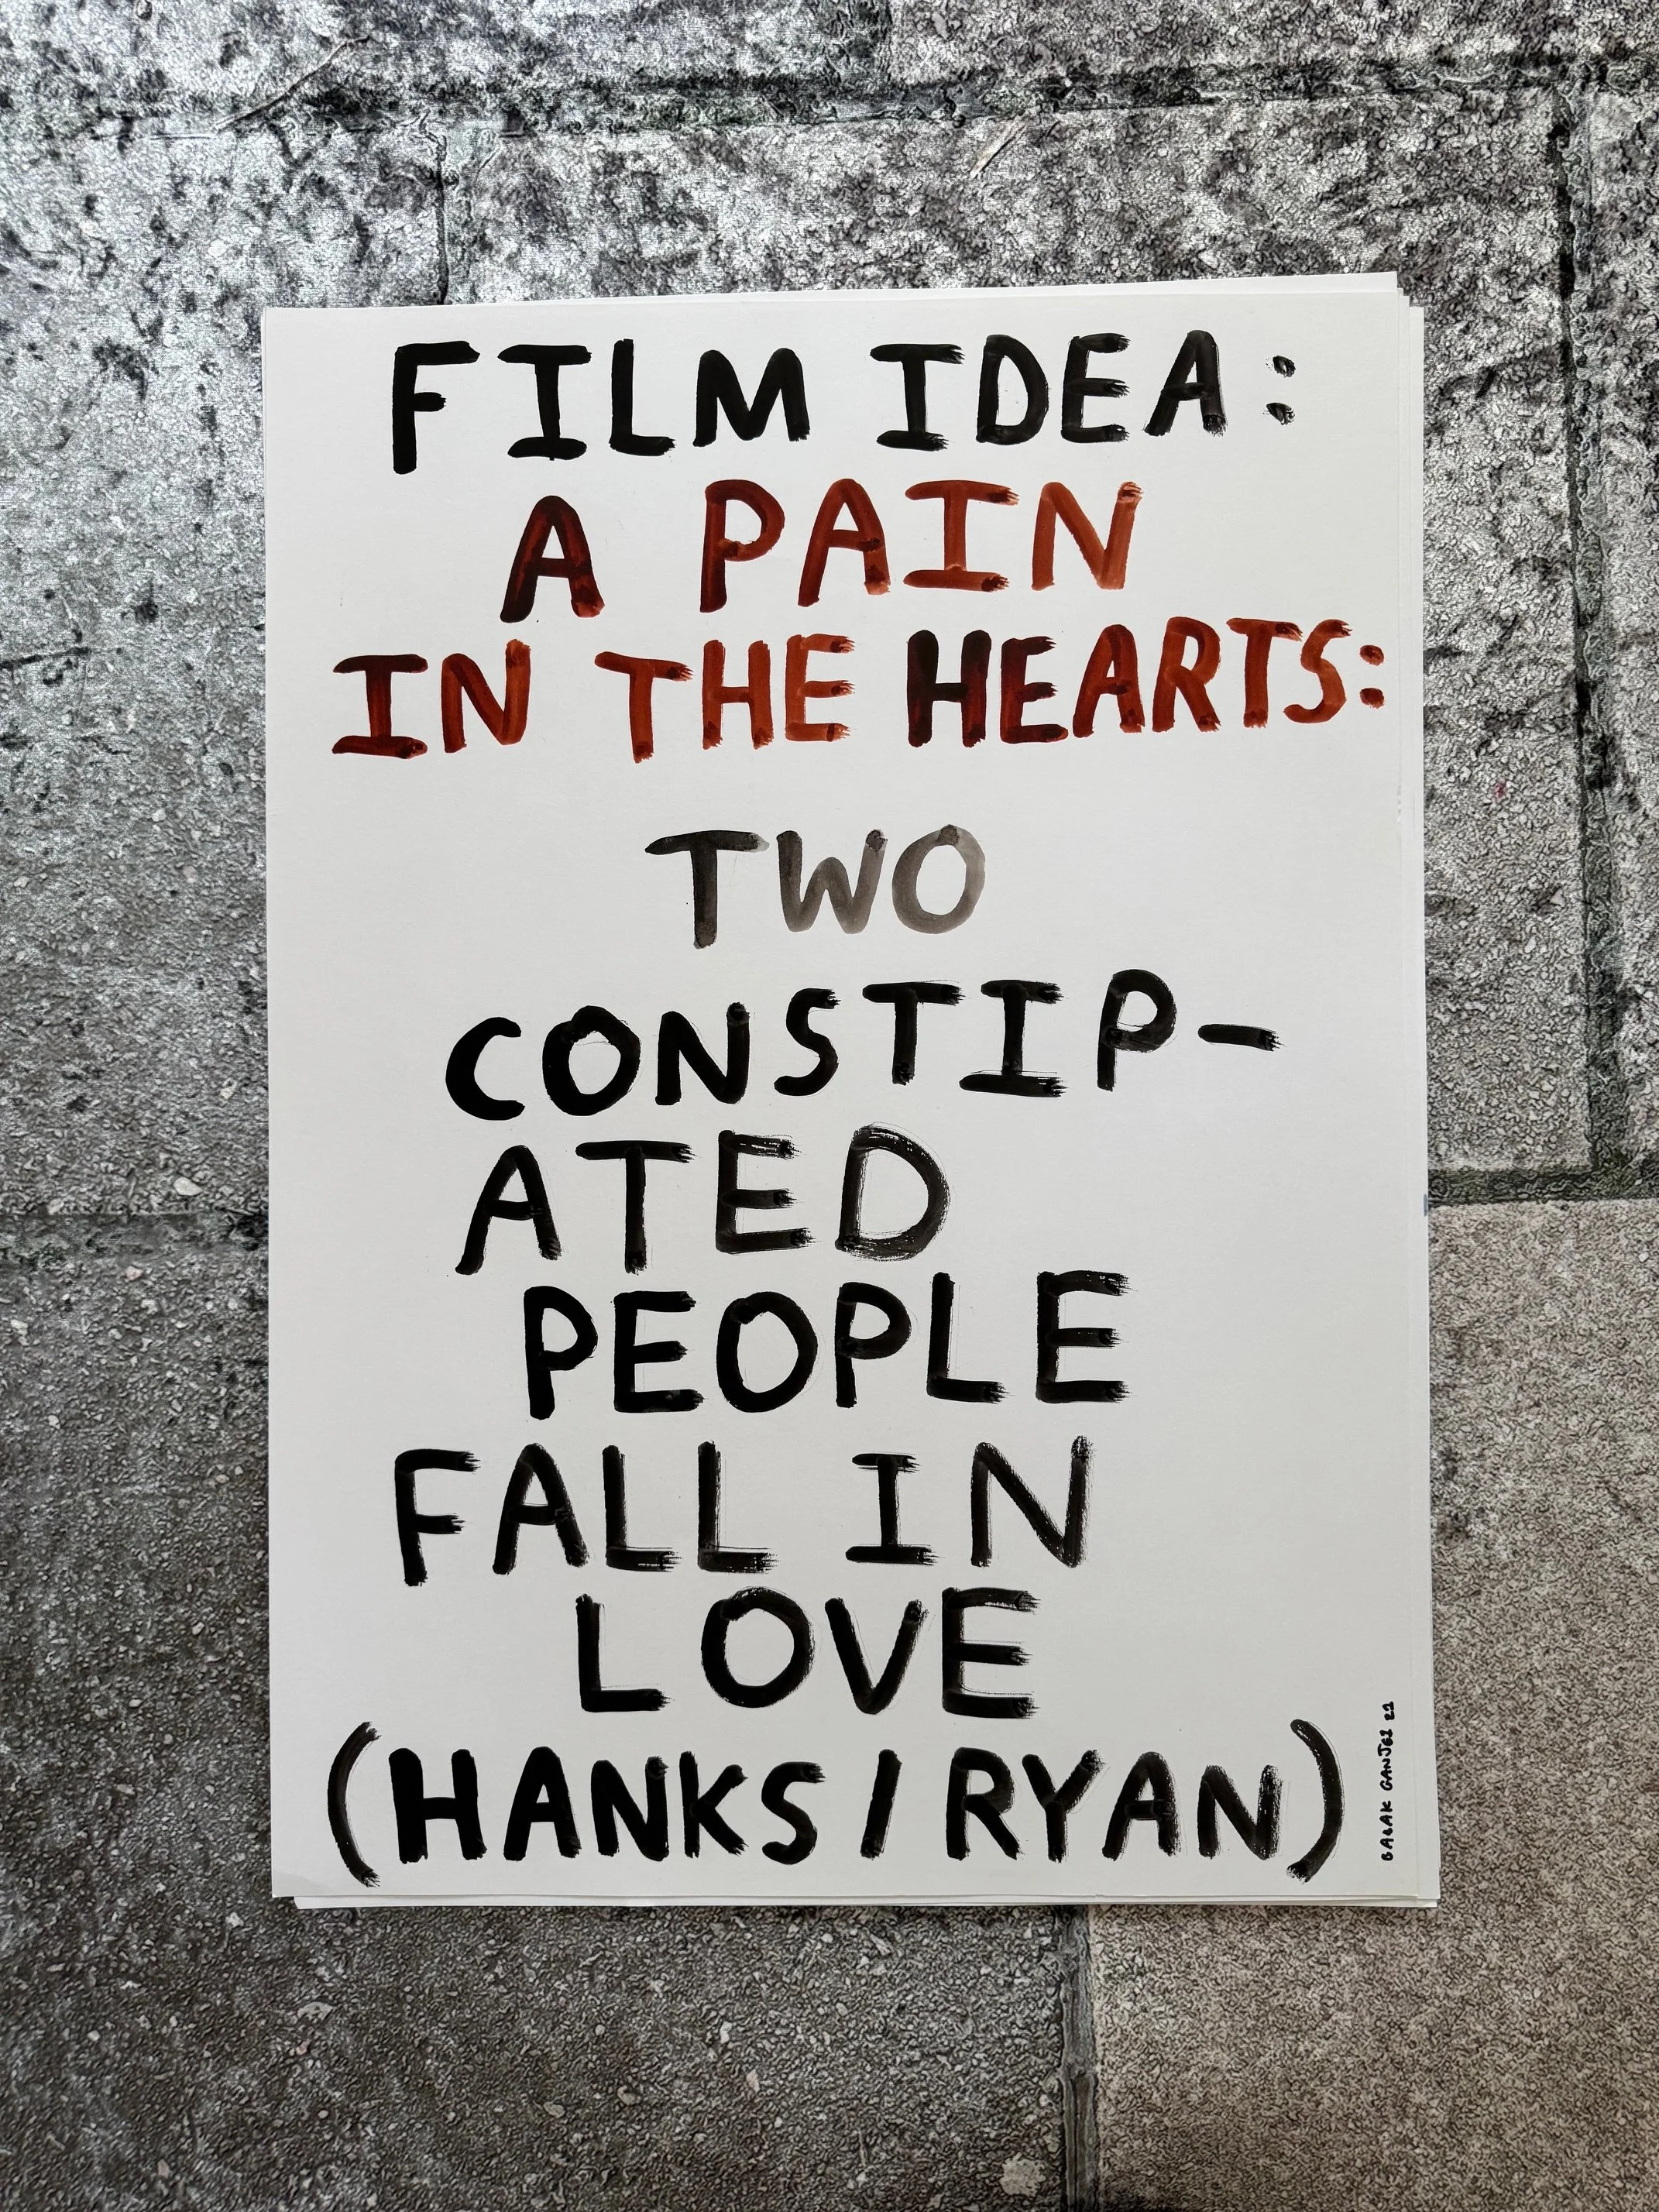 FILM IDEA:
A PAIN
IN THE HEARTS:
TWO
CONSTIP-
ATED
PEOPLE
FALL IN
LOVE
(HANKS/RYAN)
BABAK GANJEI 21